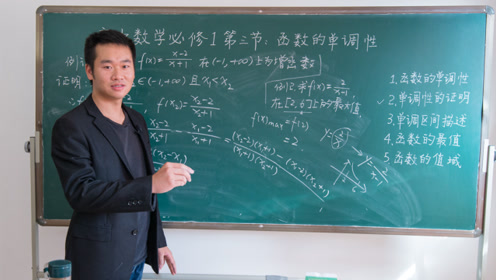 数学必修1第三节:函数的单调性
f(x)=x-2/x+1 在(-1,+∞)上为增函数
证明
∈(-1,+∞)且x₁<x₂
f(x₂)=x₂-2/x₂+1
x₂-2/x₂+1 - x₁-2/x₁+1
例2.求f(x)=2/x-1
在[2,6]上的最大值
f(x)max=f(2)
=2
1.函数的单调性
2.单调性的证明
3.单调区间描述
4.函数的最值
5.函数的值域